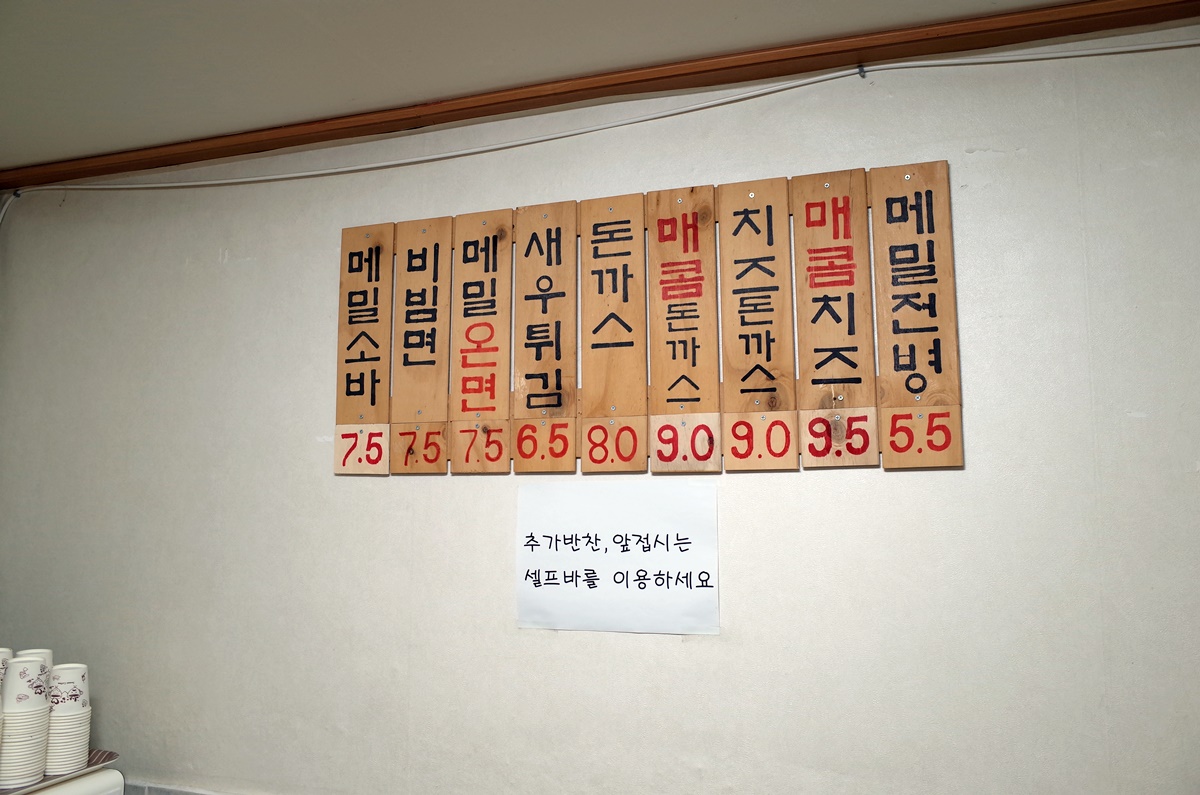 메밀소바 7.5
비빔면 7.5
메밀온면 7.5
새우튀김 6.5
돈까스 8.0
매콤돈까스 9.0
치즈돈까스 9.0
매콤치즈 9.5
메밀전병 5.5
추가반찬, 앞접시는
셀프바를 이용하세요